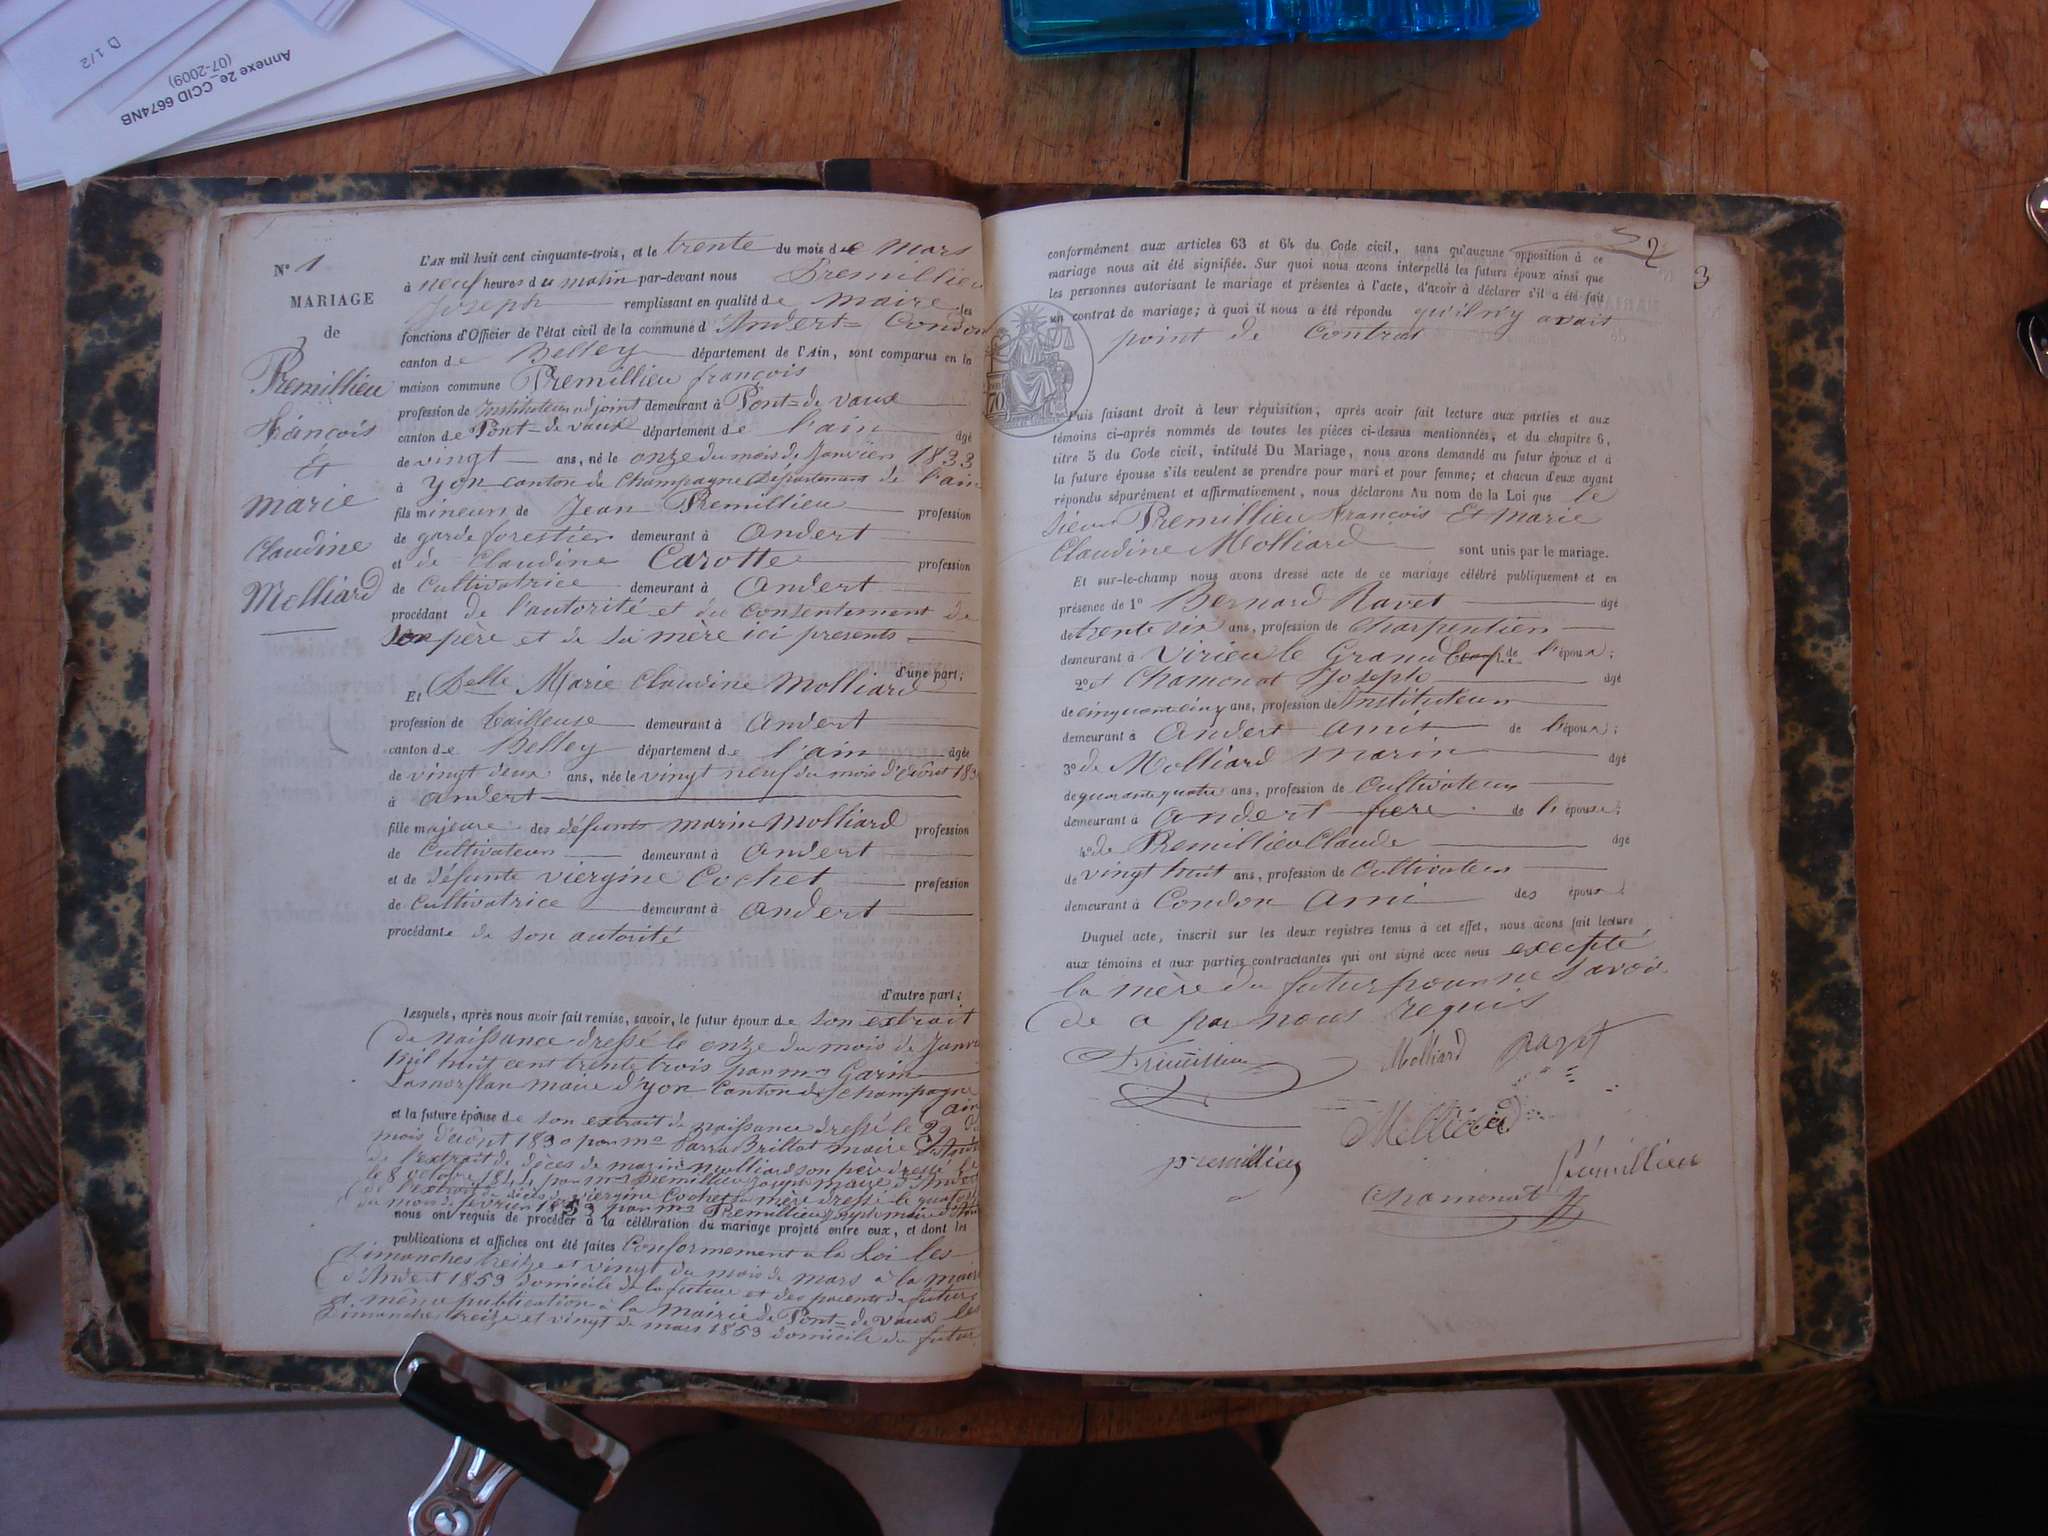 D 1/2
Annexe 2e_CCID 6674NB
(07-2009)
N° 1
MARIAGE
de
Premillieu
François
Et
marie
Claudine
Molliard
L'AN mil huit cent cinquante-trois, et le trente du mois de Mars
à neuf heures du matin par-devant nous Premillieu
Joseph remplissant en qualité de maire les
fonctions d'Officier de l'état civil de la commune d'Andert-Condon
canton de Belley département de l'Ain, sont comparus en la
maison commune Premillieu françois
profession de Instituteur adjoint demeurant à Pont-de vaux
canton de Pont-de vaux département de l'ain âgé
de vingt ans, né le onze du mois de Janvier 1833
à yon canton de Champagne Département de l'ain
fils mineur de Jean Premillieu profession
de garde forestier demeurant à Andert
et de Claudine Carotte profession
de Cultivatrice demeurant à Andert
procédant de l'autorité et du Consentement de
son père et de sa mère ici presents
d'une part;
Et Delle Marie Claudine Molliard
profession de tailleuse demeurant à Andert
canton de Belley département de l'ain âgée
de vingt deux ans, née le vingt neuf du mois d'août 183
à andert
fille majeure des défunts marin Molliard profession
de Cultivateur demeurant à Andert
et de défunte viergine Cochet profession
de Cultivatrice demeurant à andert
procédante de son autorité
d'autre part;
Lesquels, après nous avoir fait remise, savoir, le futur époux de son extrait
de naissance dressé le onze du mois de Janvi
Mil huit cent trente trois par mr Garin
maire d'yon Canton de Champagne
(ain
et la future épouse de son extrait de naissance dressé le 29 du
mois d'août 1830 par mr Brillat maire d'Ande
de l'extrait de décès de marin molliard son père dressé le
le 8 octobre 1844 par mr Premillieu Joseph maire d'Ande
de l'extrait de décès de viergine Cochet sa mère dressé le quatorze
du mois de février 1853 par mr Premillieu Joseph maire d'And
nous ont requis de procéder à la célébration du mariage projeté entre eux, et dont les
publications et affiches ont été faites Conformement à la Loi les
Dimanches treize et vingt du mois de mars à la mairi
d'Andert 1853 domicile de la future et des parents du futur
et même publication à la Mairie de Pont-de vaux les
Dimanches treize et vingt de mars 1853 domicile du futur
2
3
conformément aux articles 63 et 64 du Code civil, sans qu'aucune opposition à ce
mariage nous ait été signifiée. Sur quoi nous avons interpellé les futurs époux ainsi que
les personnes autorisant le mariage et présentes à l'acte, d'avoir à déclarer s'il a été fait
un contrat de mariage; à quoi il nous a été répondu qu'il n'y avait
point de Contrat
70
Puis faisant droit à leur réquisition, après avoir fait lecture aux parties et aux
témoins ci-après nommés de toutes les pièces ci-dessus mentionnées, et du chapitre 6,
titre 5 du Code civil, intitulé Du Mariage, nous avons demandé au futur époux et à
la future épouse s'ils veulent se prendre pour mari et pour femme; et chacun d'eux ayant
répondu séparément et affirmativement, nous déclarons Au nom de la Loi que le
sieur Premillieu François Et Marie
Claudine Molliard sont unis par le mariage.
Et sur-le-champ nous avons dressé acte de ce mariage célébré publiquement et en
présence de 1° Bernard Ravet âgé
de trente six ans, profession de Charpentier
demeurant à Virieu le Grand de l'époux;
2° et Chamonat Joseph âgé
de cinquante cinq ans, profession de Instituteur
demeurant à Andert ami de l'époux;
3° de Molliard Marin âgé
de quarante quatre ans, profession de Cultivateur
demeurant à Andert frere de l'épouse;
4° de Premillieu Claude âgé
de vingt huit ans, profession de Cultivateur
demeurant à Condon Ami des époux
Duquel acte, inscrit sur les deux registres tenus à cet effet, nous avons fait lecture
aux témoins et aux parties contractantes qui ont signé avec nous excepté
la mère du futur pour ne savoir
de ce par nous requis
Premillieu Molliard Ravet
Molliard
premillieu Prémillieu
Chamonat